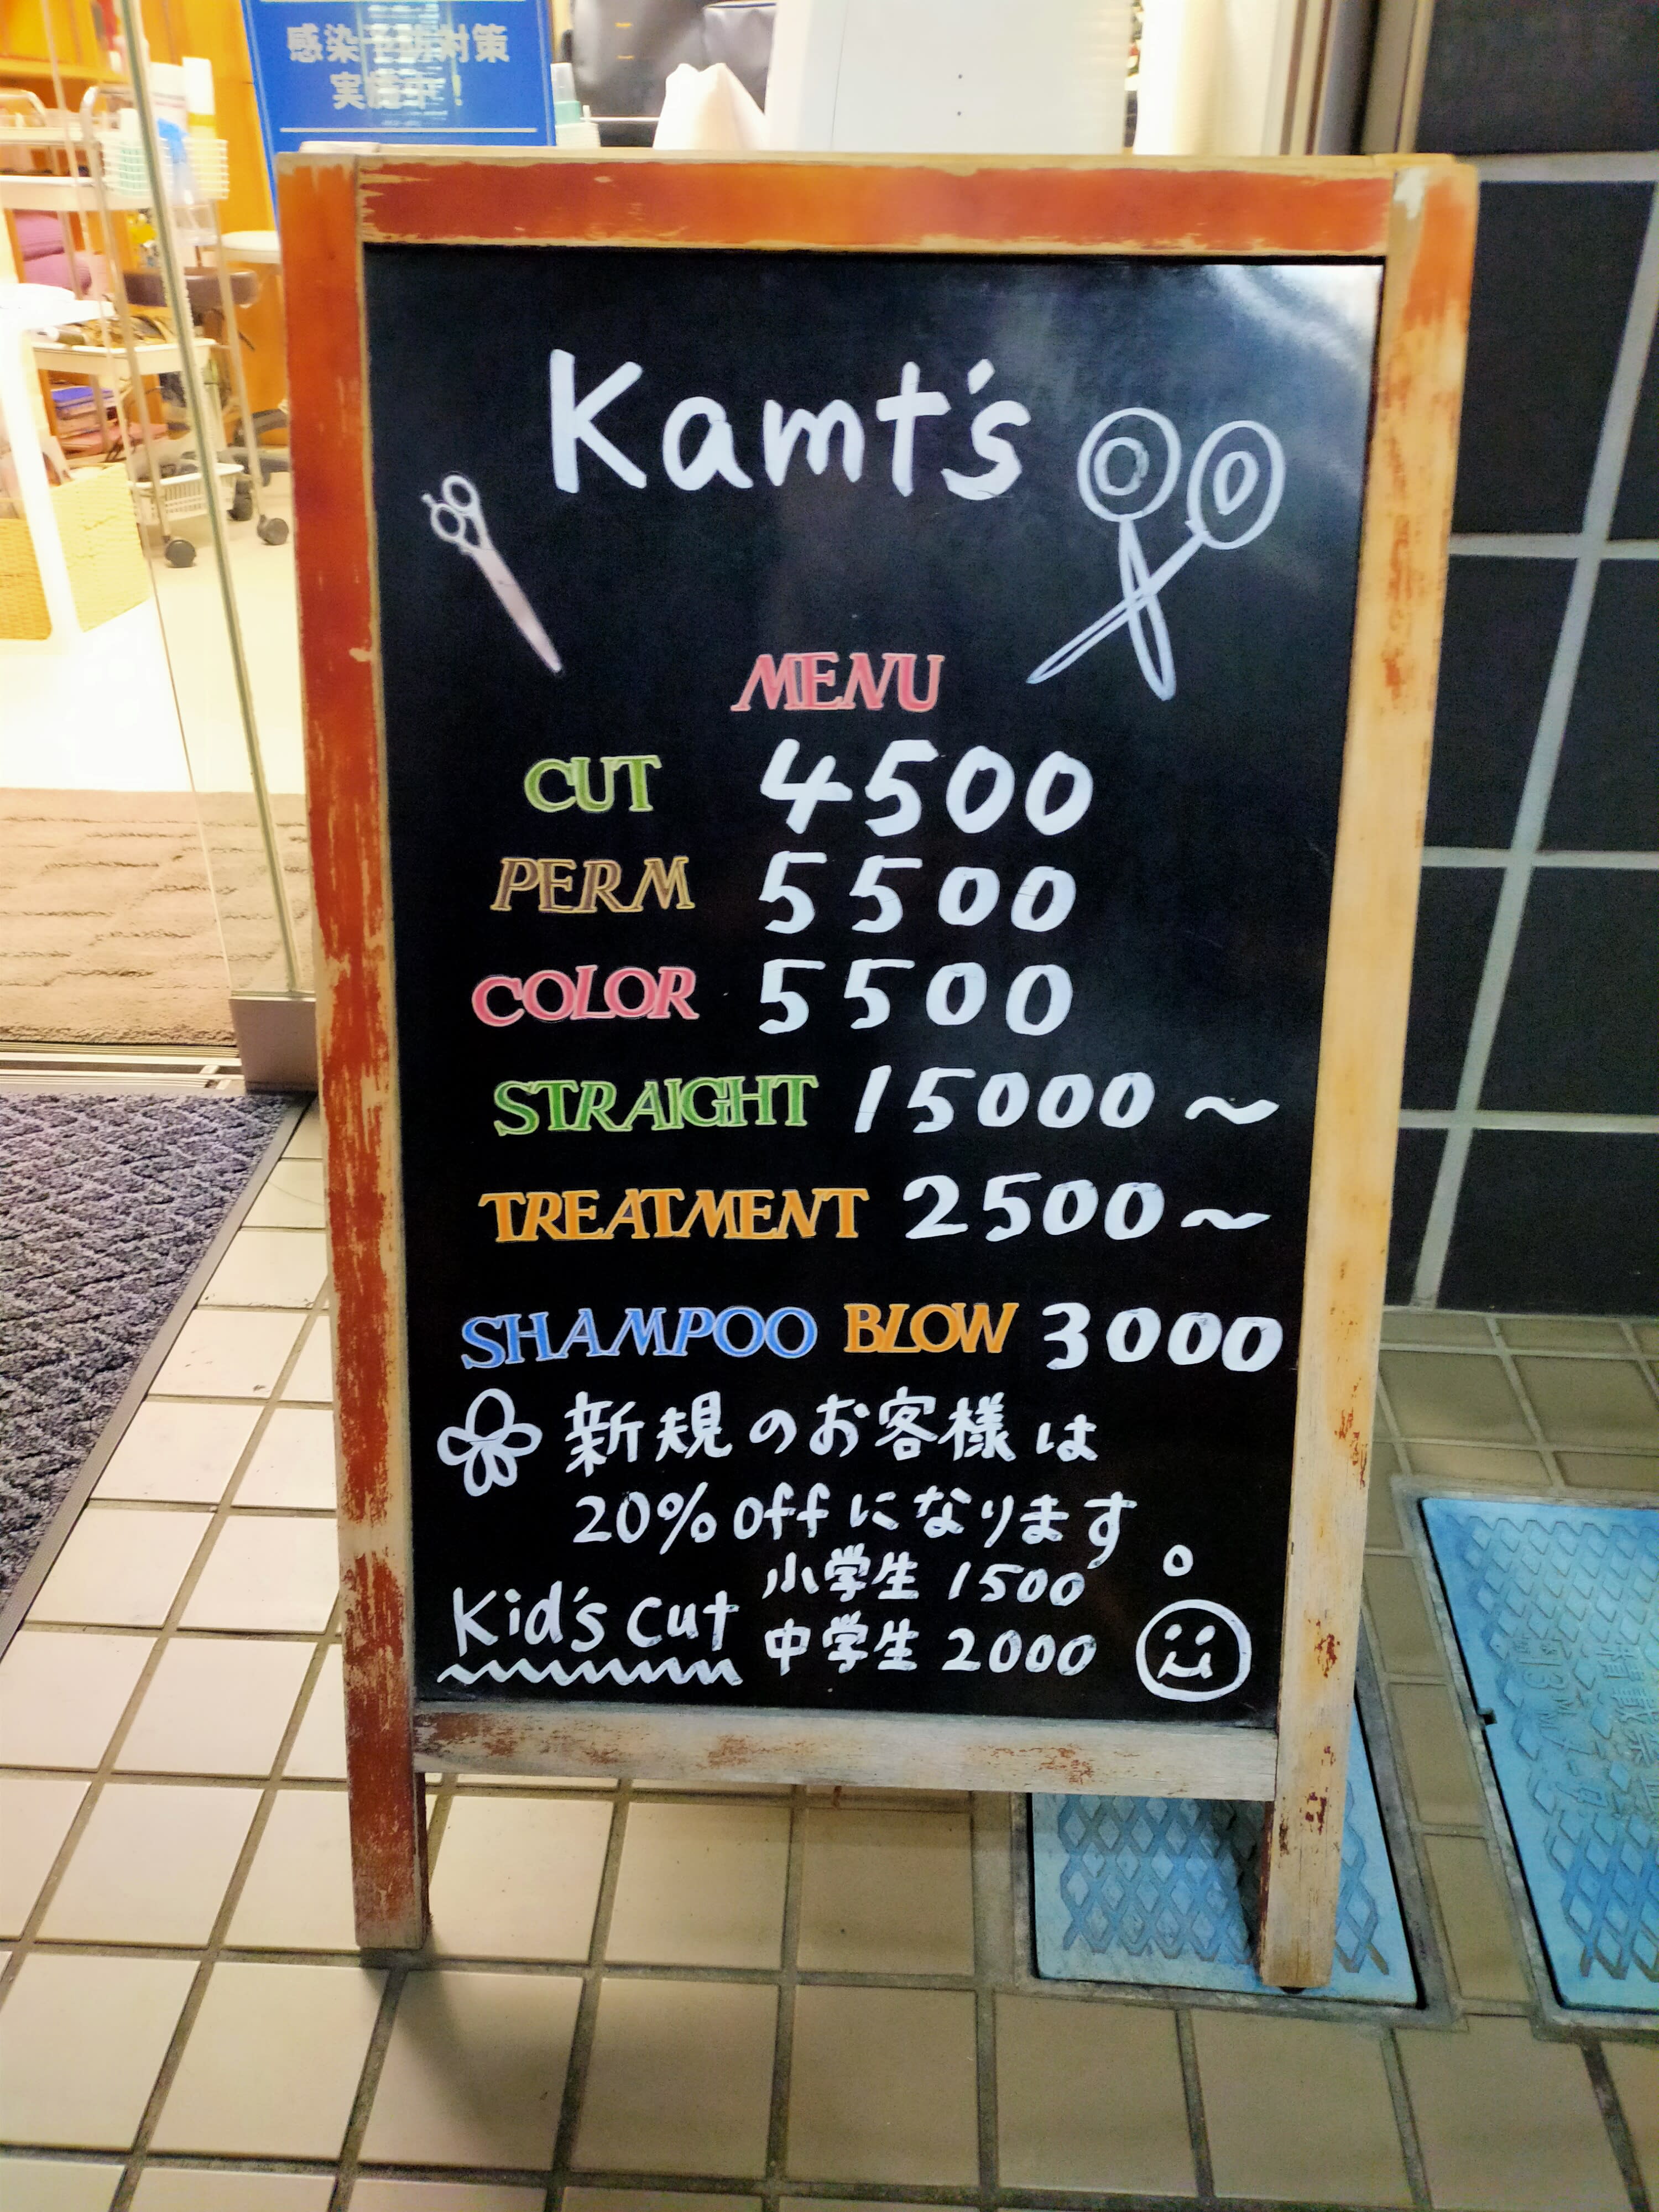 感染予防対策
実施中!
Kamt's
MENU
CUT 4500
PERM 5500
COLOR 5500
STRAIGHT 15000～
TREATMENT 2500～
SHAMPOO BLOW 3000
新規のお客様は
20%offになります。
Kid's cut 小学生 1500
中学生 2000